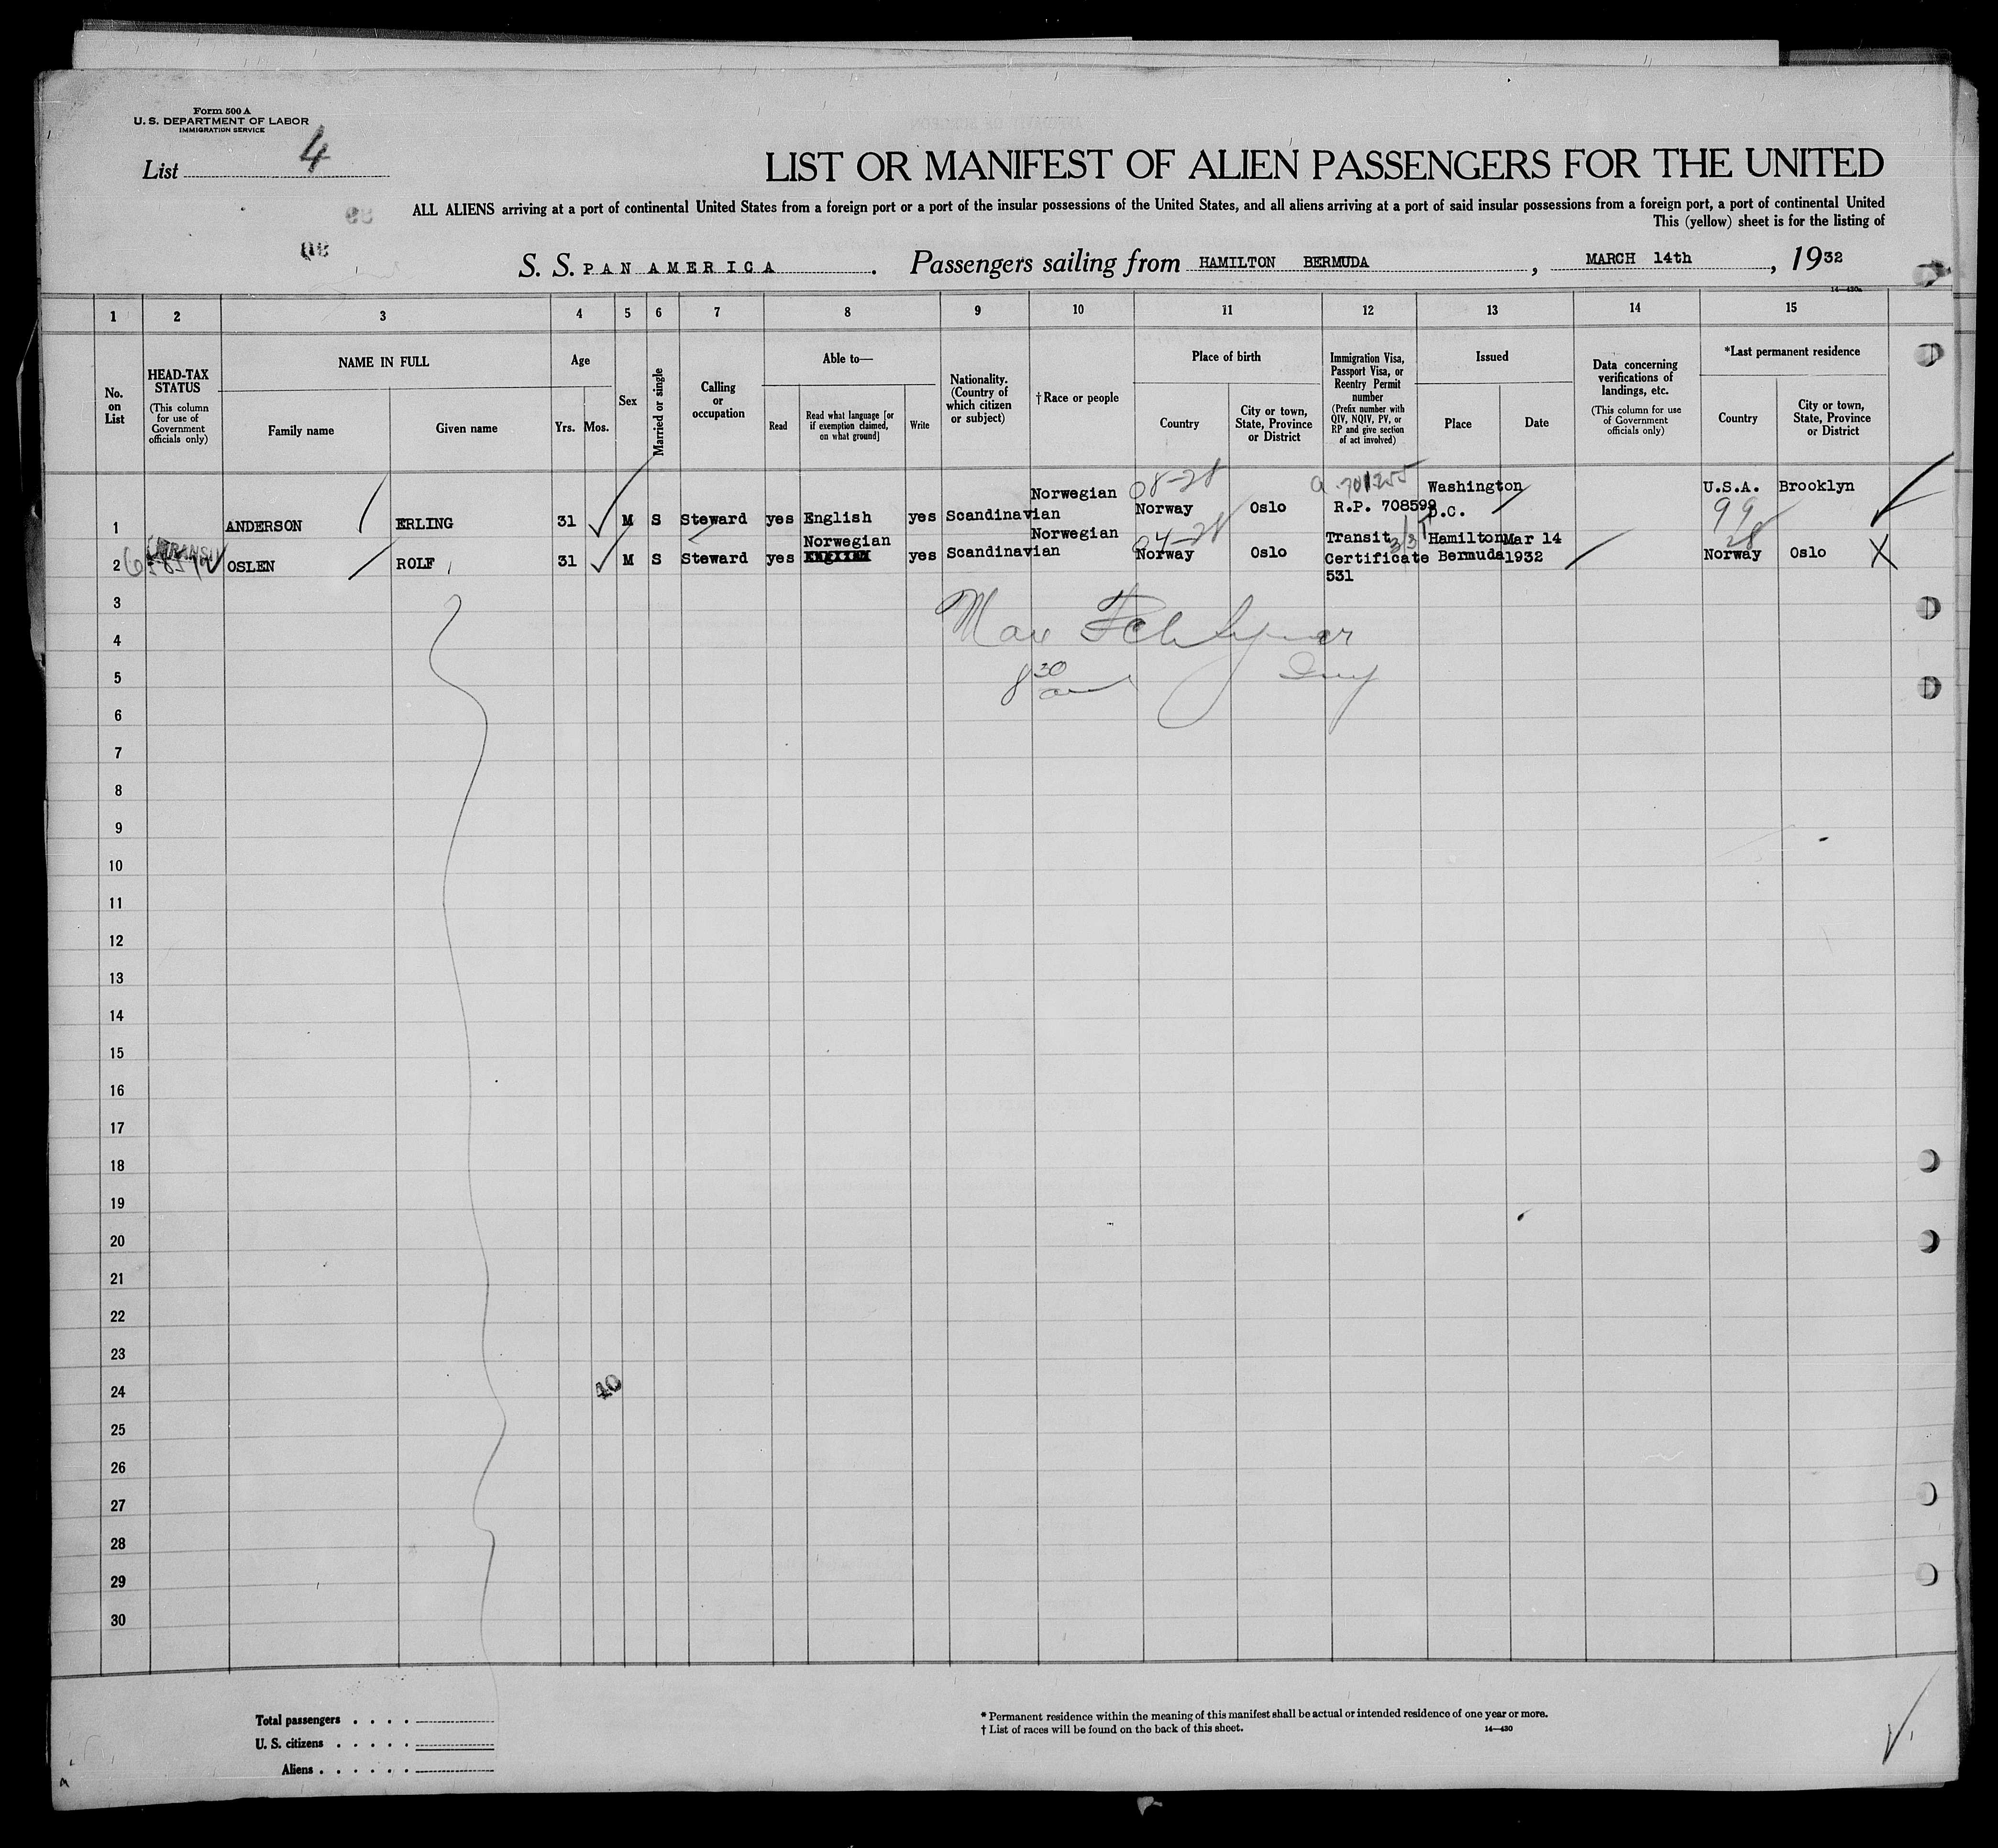 Form 500 A
U. S. DEPARTMENT OF LABOR
IMMIGRATION SERVICE
List 4
LIST OR MANIFEST OF ALIEN PASSENGERS FOR THE UNITED
ALL ALIENS arriving at a port of continental United States from a foreign port or a port of the insular possessions of the United States, and all aliens arriving at a port of said insular possessions from a foreign port, a port of continental United
This (yellow) sheet is for the listing of
S. S. PAN AMERICA . Passengers sailing from HAMILTON BERMUDA , MARCH 14th , 1932
14—430a
1 2 3 4 5 6 7 8 9 10 11 12 13 14 15
No. on List
HEAD-TAX STATUS
(This column for use of Government officials only)
NAME IN FULL
Family name Given name
Age
Yrs. Mos.
Sex
Married or single
Calling or occupation
Able to—
Read
Read what language [or if exemption claimed, on what ground]
Write
Nationality. (Country of which citizen or subject)
† Race or people
Place of birth
Country
City or town, State, Province or District
Immigration Visa, Passport Visa, or Reentry Permit number
(Prefix number with QIV, NQIV, PV, or RP and give section of act involved)
Issued
Place Date
Data concerning verifications of landings, etc.
(This column for use of Government officials only)
*Last permanent residence
Country
City or town, State, Province or District
1 ANDERSON ERLING 31 M S Steward yes English yes Scandinavian Norwegian 08-28 Norway Oslo a 701255 R.P. 708599 Washington D.C. U.S.A. 99 Brooklyn
2 TRANSIT OSLEN ROLF 31 M S Steward yes Norwegian yes Scandinavian Norwegian 04-28 Norway Oslo Transit Certificate 531 Hamilton Bermuda Mar 14 1932 28 Norway Oslo X
3
4
5 8 30 am
6
7
8
9
10
11
12
13
14
15
16
17
18
19
20
21
22
23
24 40
25
26
27
28
29
30
Total passengers . . . .
U. S. citizens . . . . .
Aliens . . . . . .
* Permanent residence within the meaning of this manifest shall be actual or intended residence of one year or more.
† List of races will be found on the back of this sheet.
14—430